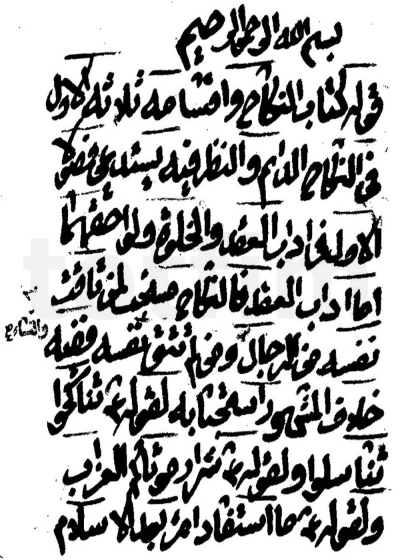 بسم الله الرحمن الرحيم
قوله كتاب النكاح واقسامه ثلاثة الاول
في النكاح الدايم والنظر فيه يستدعي فصولا
الاول في اداب العقد والخلوة ولواحقهما
اما اداب العقد فالنكاح مستحب لمن تاقت
نفسه من الرجال ومن لم تتق نفسه ففيه
والنساء
خلاف المشهور استحبابه لقوله ع تناكحوا
تناسلوا ولقوله ع شرار موتاكم العزاب
ولقوله ع ما استفاد امرء بعد الاسلام